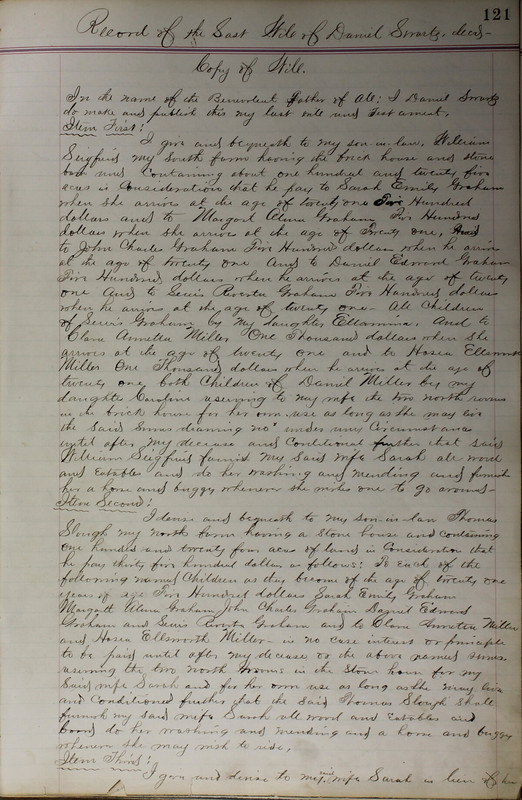 121
Record of the Last Will of Daniel Swartz, decd-
Copy of Will.
In the name of the Benevolent Father of All: I Daniel Swartz
do make and publish this my last will and Testament.
Item First:
I give and bequeath to my son-in-law, William
Seigfried my South farm having the brick house and stone
barn and Containing about one hundred and twenty five
acres in Consideration that he pay to Sarah Emily Graham
when she arrives at the age of twenty one Five Hundred
dollars and to Margaret Alma Graham Five Hundred
dollars when she arrives at the age of Twenty One, And
to John Charles Graham Five Hundred dollars when he arrives
at the age of twenty one And to Daniel Edward Graham
Five Hundred dollars when he arrives at the age of twenty
one And to Lewis Graham Five Hundred dollars
when he arrives at the age of twenty one- All Children
of Lewis Graham by my daughter And to
Clara Annetta Miller One Thousand dollars when she
arrives at the age of twenty one and to Hosea Ellsworth
Miller One Thousand dollars when he arrives at the age of
twenty one, both Children of Daniel Miller by my
daughter Caroline reserving to my wife the two north rooms
in the brick house for her own use as long as she may live
the said Sums no under any Circumstances
until after my decease and Conditioned further that said
William Seigfried furnish my said wife Sarah all wood
and Eatables and do her washing and mending and furnish
her a horse and buggy whenever she wishes one to go around-
Item Second:
I devise and bequeath to my son-in-law Thomas
Slough my north farm having a Stone house and containing
One hundred and twenty four acres of land in Consideration that
he pay thirty five hundred dollars as follows: To Each of the
following named Children as they become of the age of twenty one
years of age Five Hundred dollars Sarah Emily Graham
Margaret Alma Graham John Charles Graham Daniel Edward
Graham and Lewis Graham and to Clara Annetta Miller
and Hosea Ellsworth Miller- in no case interest or principle
to be paid until after my decease or the above named sums-
reserving the two North rooms in the Stone house for my
Said wife Sarah and for her own use as long as she may live
and Conditioned further that the Said Thomas Slough shall
furnish my said wife Sarah all wood and Eatables and
do her washing and mending and a horse and buggy
whenever she may wish to ride,
Item Third:
I give and devise to my said wife Sarah in lieu of her